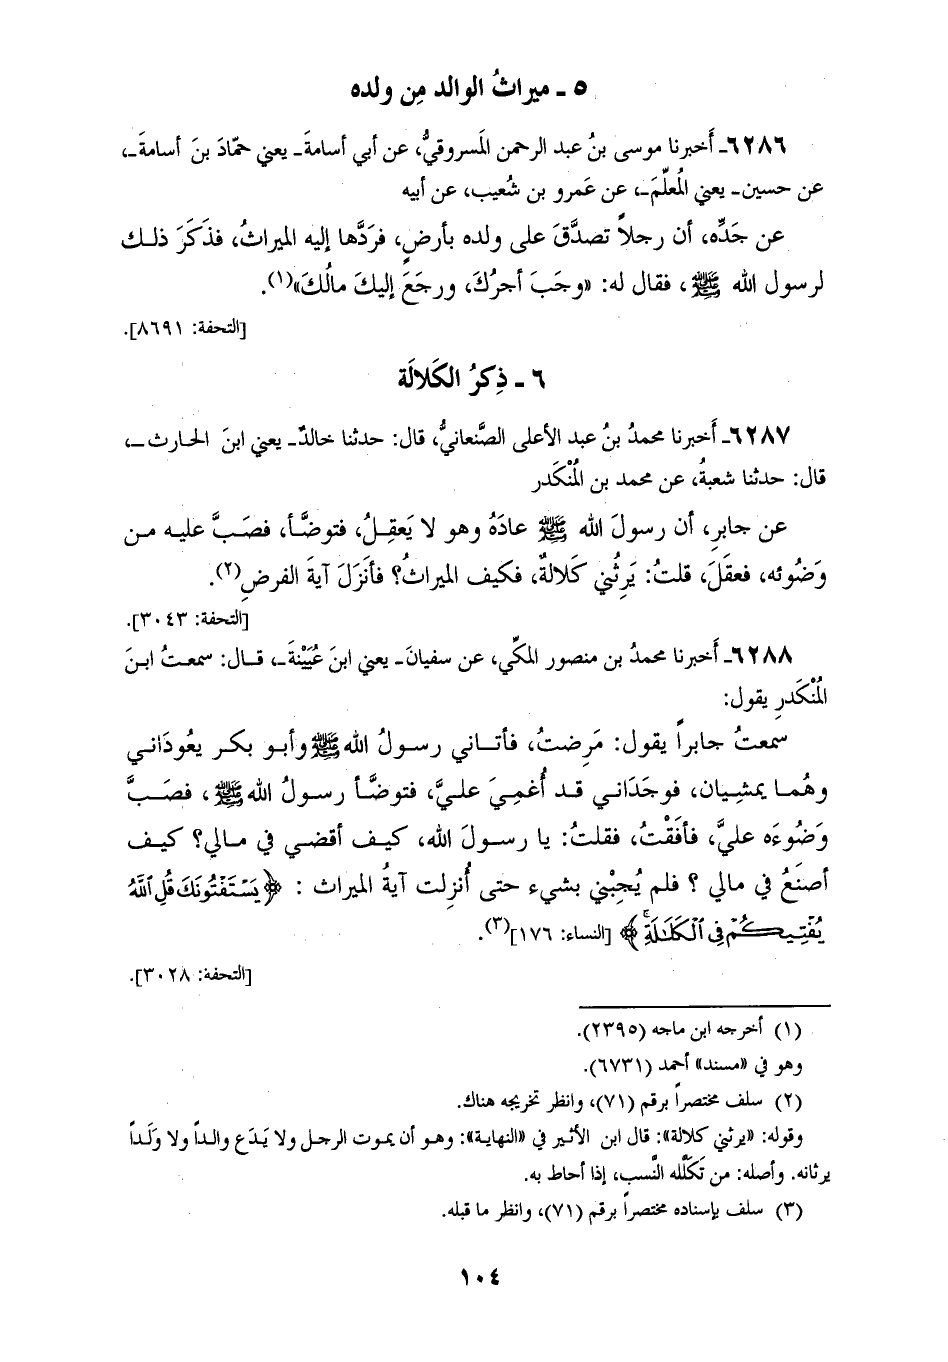 ٥ ـ ميراثُ الوالد مِن ولده
٦٢٨٦ـ أَخبرنا موسى بنُ عبد الرحمن المَسروقيُّ، عن أبي أسامةَ ـ يعني حمّادَ بنَ أسامةَ ـ،
عن حسين ـ يعني المُعلِّمَ ـ، عن عَمرو بن شُعيب، عن أبيه
عن جَدِّه، أن رجلاً تصدَّقَ على ولده بأرضٍ، فرَدَّها إليه الميراثُ، فذَكَرَ ذلك
لرسول الله ﷺ، فقال له: «وجَبَ أجرُكَ، ورجَعَ إليكَ مالُكَ»(١).
[التحفة: ٨٦٩١].
٦ ـ ذِكرُ الكَلالَة
٦٢٨٧ـ أَخبرنا محمدُ بنُ عبد الأعلى الصَّنعانيُّ، قال: حدثنا خالدٌ ـ يعني ابنَ الحارث ـ،
قال: حدثنا شعبةُ، عن محمد بن المُنْكَدر
عن جابرِ، أن رسولَ الله ﷺ عادَهُ وهو لا يَعقِلُ، فتوضَّأ، فصَبَّ عليه من
وَضُوئه، فعقَلَ، قلتُ: يَرِثُني كَلالةٌ، فكيف الميراثُ؟ فأَنزَلَ آيةَ الفرضِ(٢).
[التحفة: ٣٠٤٣].
٦٢٨٨ـ أَخبرنا محمدُ بن منصور المكّي، عن سفيانَ ـ يعني ابنَ عُيَيْنةَ ـ، قال: سمعتُ ابنَ
المُنْكَدرِ يقول:
سمعتُ جابراً يقول: مَرِضتُ، فأتاني رسولُ الله ﷺ وأبو بكر يعُودَاني
وهُما يمشِيان، فوجَدَاني قد أُغمِيَ عليَّ، فتوضَّأ رسولُ الله ﷺ، فصَبَّ
وَضُوءَه عليَّ، فأفَقْتُ، فقلتُ: يا رسولَ الله، كيف أقضي في مالي؟ كيف
أصنَعُ في مالي ؟ فلم يُجِبْني بشيء حتى أُنزِلت آيةُ الميراث : ﴿يَسْتَفْتُونَكَ قُلِ ٱللَّهُ
يُفْتِيكُمْ فِى ٱلْكَلَٰلَةِۚ﴾ [النساء: ١٧٦](٣).
[التحفة: ٣٠٢٨].
(١) أخرجه ابن ماجه (٢٣٩٥).
وهو في «مسند» أحمد (٦٧٣١).
(٢) سلف مختصراً برقم (٧١)، وانظر تخريجه هناك.
وقوله: «يرثني كلالة»: قال ابن الأثير في «النهاية»: وهو أن يموت الرجل ولا يَدَع والداً ولا ولَداً
يرثانه. وأصله: من تَكَلَّله النَّسب، إذا أحاط به.
(٣) سلف بإسناده مختصراً برقم (٧١)، وانظر ما قبله.
١٠٤